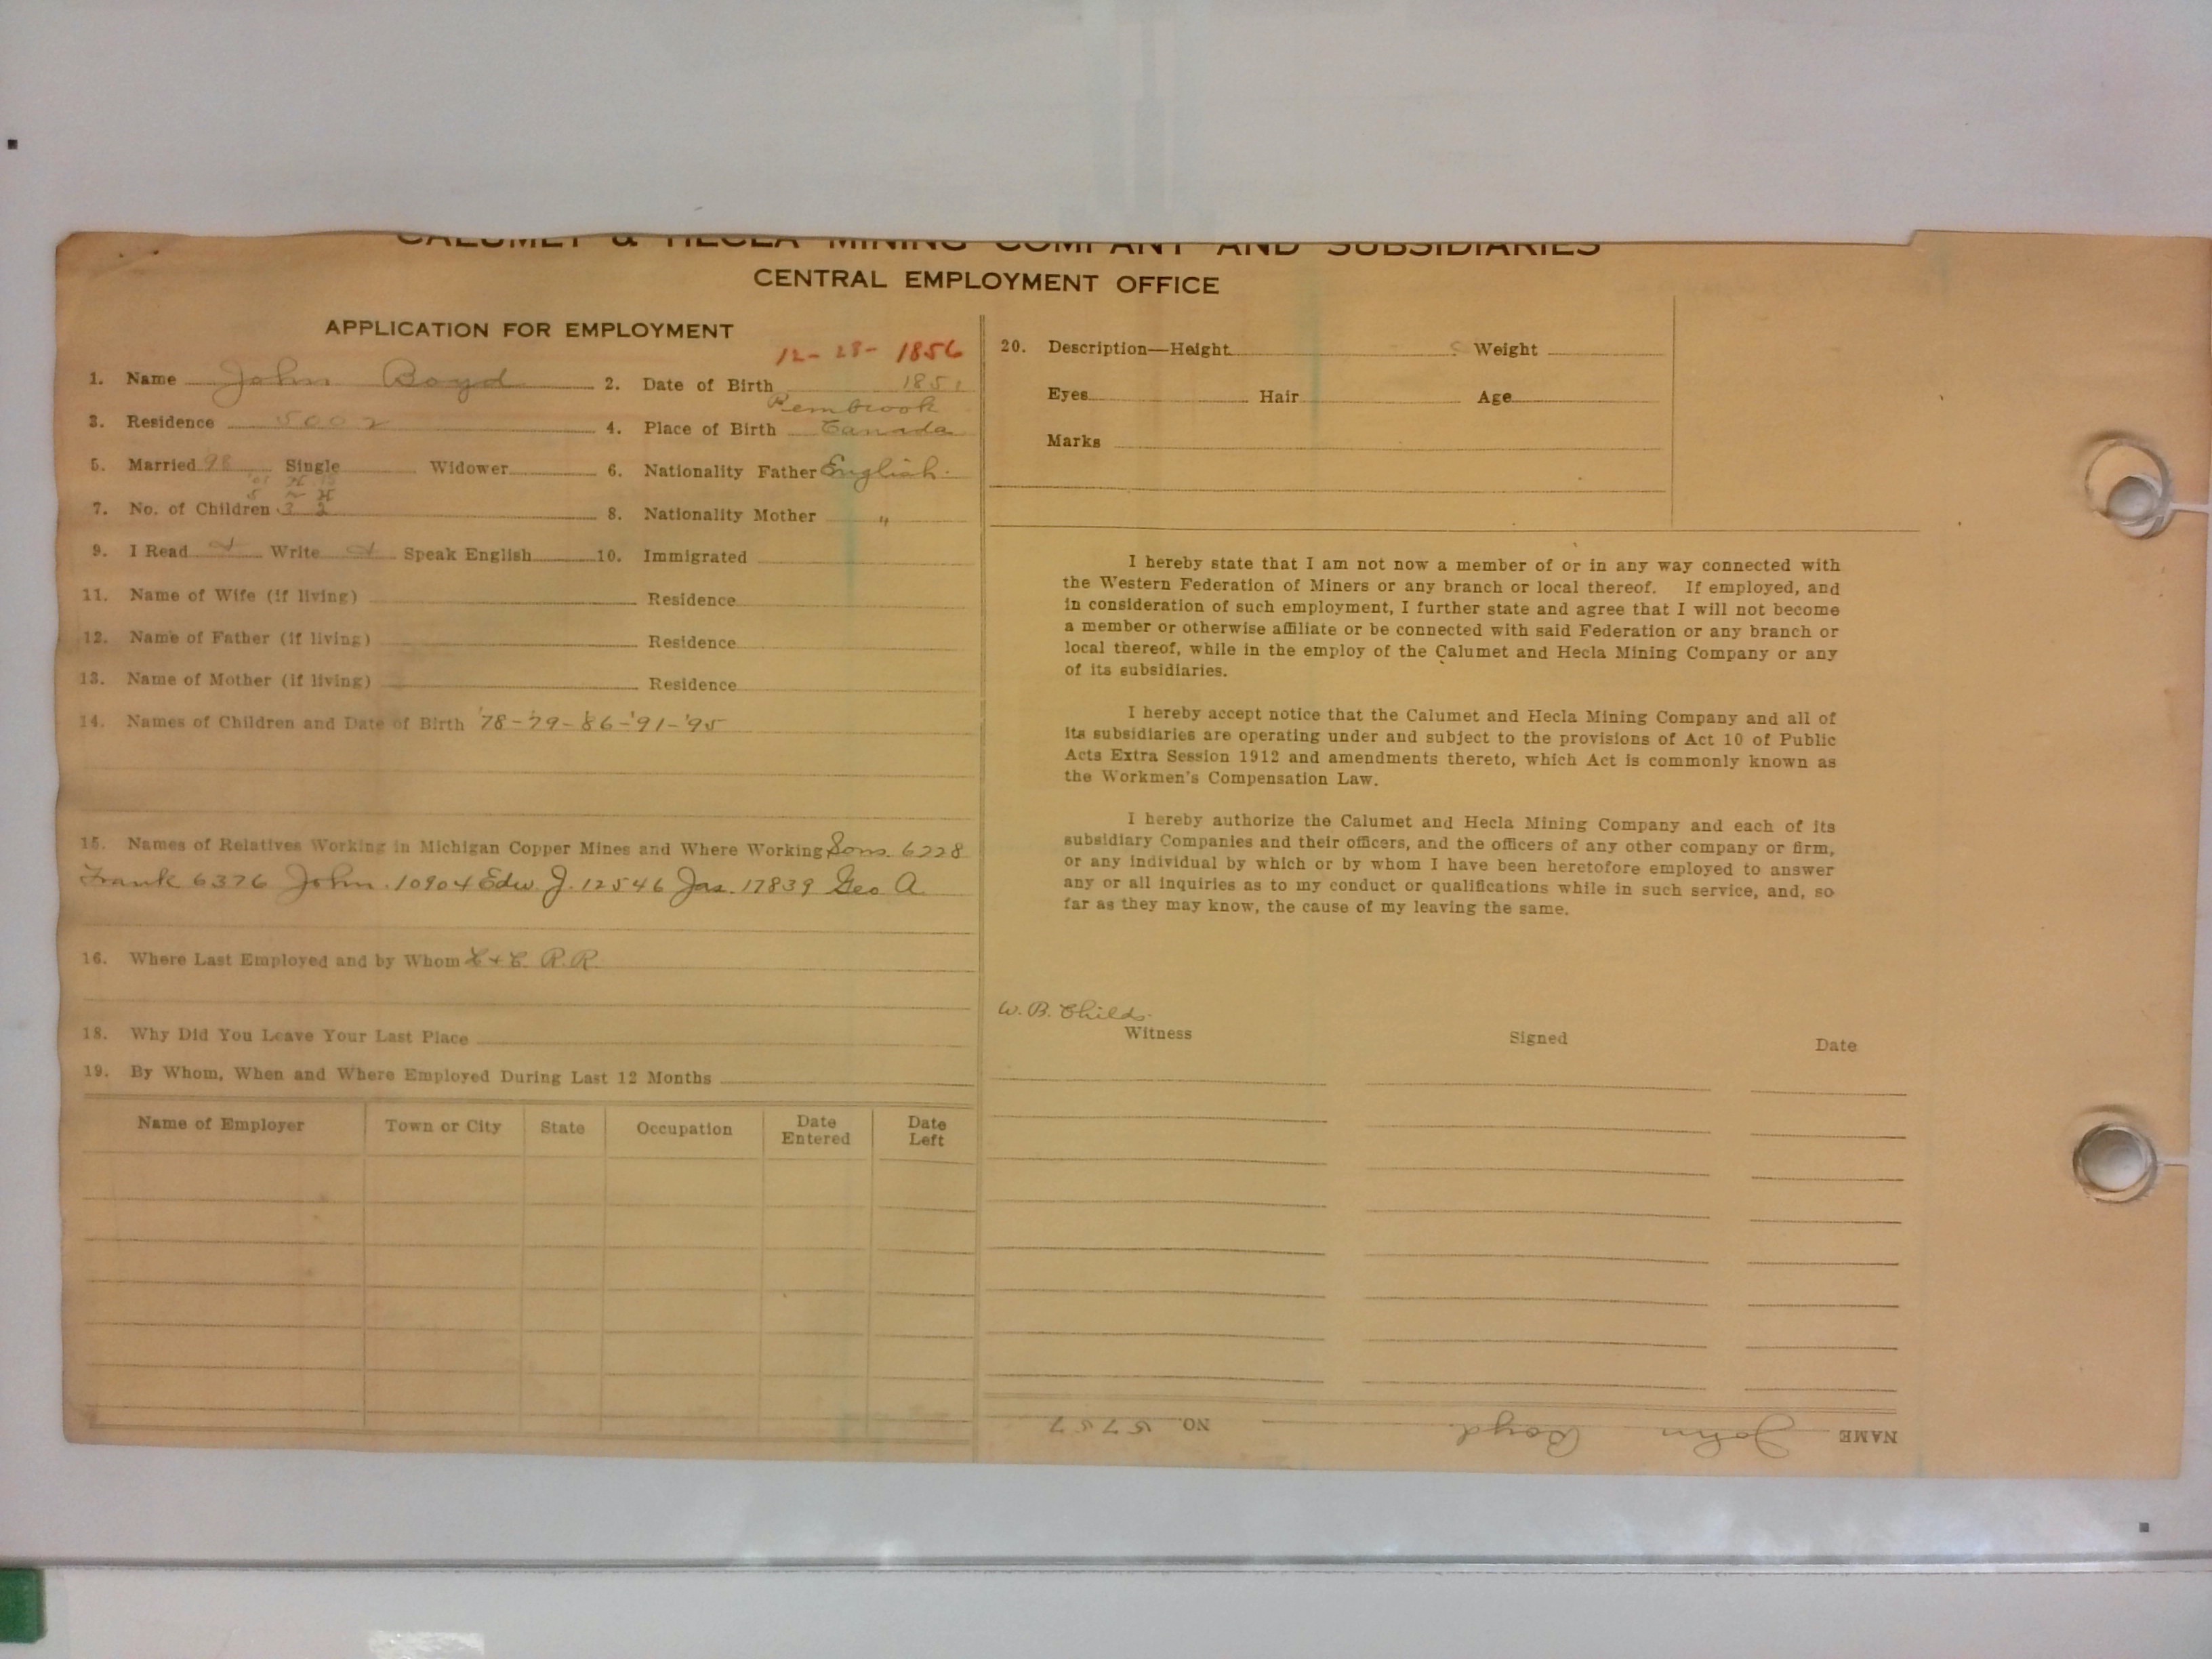 CALUMET & HECLA MINING COMPANY AND SUBSIDIARIES
CENTRAL EMPLOYMENT OFFICE
APPLICATION FOR EMPLOYMENT
12-28-1856
1. Name John Boyd 2. Date of Birth 1851
Pembrook
3. Residence 5002 4. Place of Birth Canada
5. Married 98 Single Widower 6. Nationality Father English
7. No. of Children 3 2 8. Nationality Mother "
9. I Read Write Speak English 10. Immigrated
11. Name of Wife (if living) Residence
12. Name of Father (if living) Residence
13. Name of Mother (if living) Residence
14. Names of Children and Date of Birth '78-'79-86-'91-'95
15. Names of Relatives Working in Michigan Copper Mines and Where Working Sons. 6228
Frank 6376 John. 10904 Edw. J. 12546 Jas. 17839 Geo A.
16. Where Last Employed and by Whom R.R.
18. Why Did You Leave Your Last Place
19. By Whom, When and Where Employed During Last 12 Months
Name of Employer Town or City State Occupation Date Entered Date Left
20. Description—Height Weight
Eyes Hair Age
Marks
I hereby state that I am not now a member of or in any way connected with
the Western Federation of Miners or any branch or local thereof. If employed, and
in consideration of such employment, I further state and agree that I will not become
a member or otherwise affiliate or be connected with said Federation or any branch or
local thereof, while in the employ of the Calumet and Hecla Mining Company or any
of its subsidiaries.
I hereby accept notice that the Calumet and Hecla Mining Company and all of
its subsidiaries are operating under and subject to the provisions of Act 10 of Public
Acts Extra Session 1912 and amendments thereto, which Act is commonly known as
the Workmen's Compensation Law.
I hereby authorize the Calumet and Hecla Mining Company and each of its
subsidiary Companies and their officers, and the officers of any other company or firm,
or any individual by which or by whom I have been heretofore employed to answer
any or all inquiries as to my conduct or qualifications while in such service, and, so
far as they may know, the cause of my leaving the same.
W. B. Childs.
Witness Signed Date
NAME John Boyd. NO. 5757